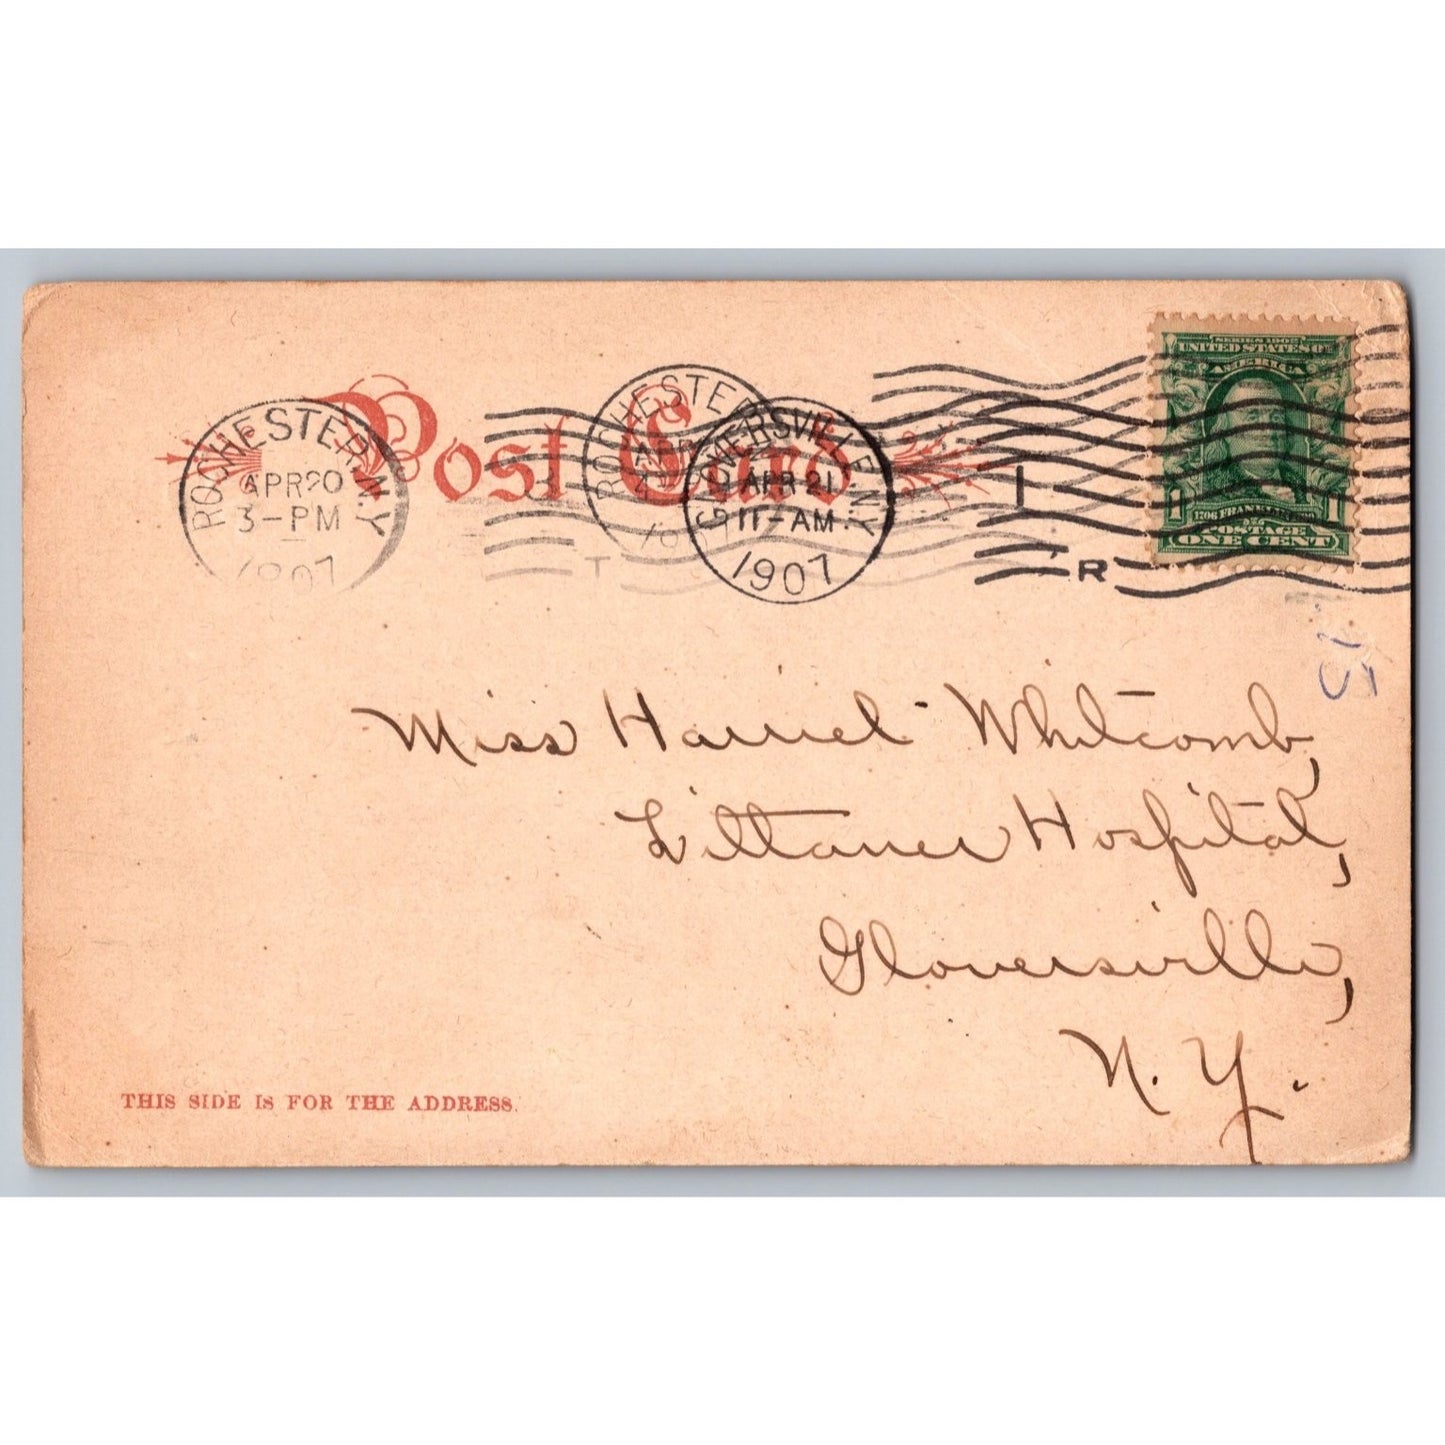 Post Card
ROCHESTER, N.Y.
APR 20
3-PM
1907
ROCHESTER
GLOVERSVILLE N.Y.
APR 21
11-AM
1907
T
I
R
SERIES 1902
UNITED STATES OF
AMERICA
1 1
1706 FRANKLIN 1790
POSTAGE
ONE CENT
15
Miss Harriet Whitcomb,
Littauer Hospital,
Gloversville,
N. Y.
THIS SIDE IS FOR THE ADDRESS.